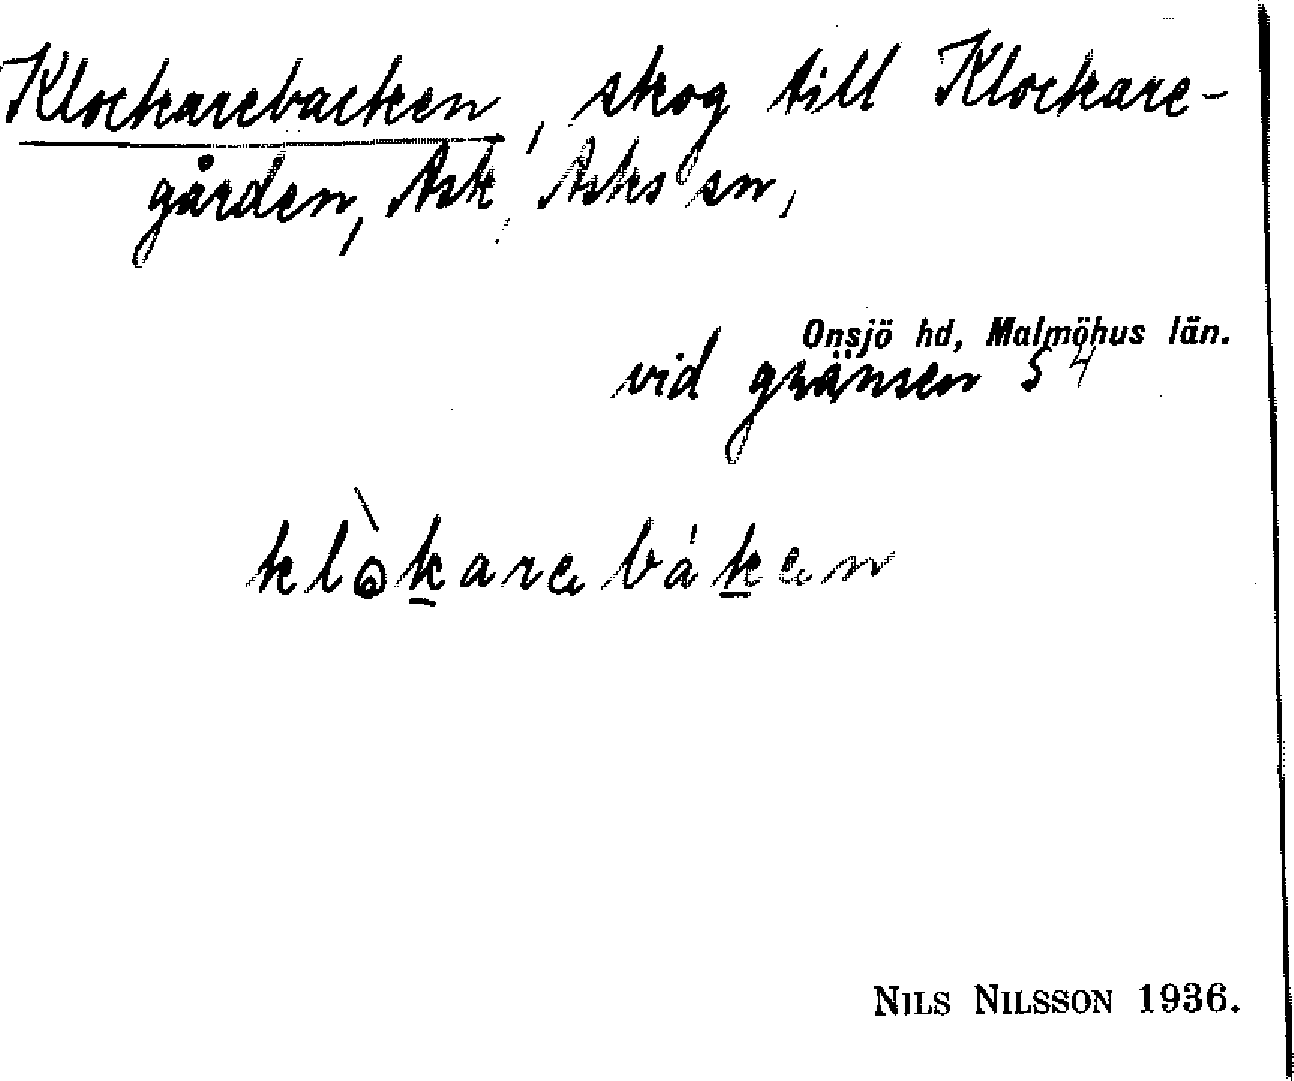 Klockarebacken, skog till Klockare-
gården, Ask, Asks sn,
Onsjö hd, Malmöhus län.
vid gränsen 54
klòkarebáken
NILS NILSSON 1936.